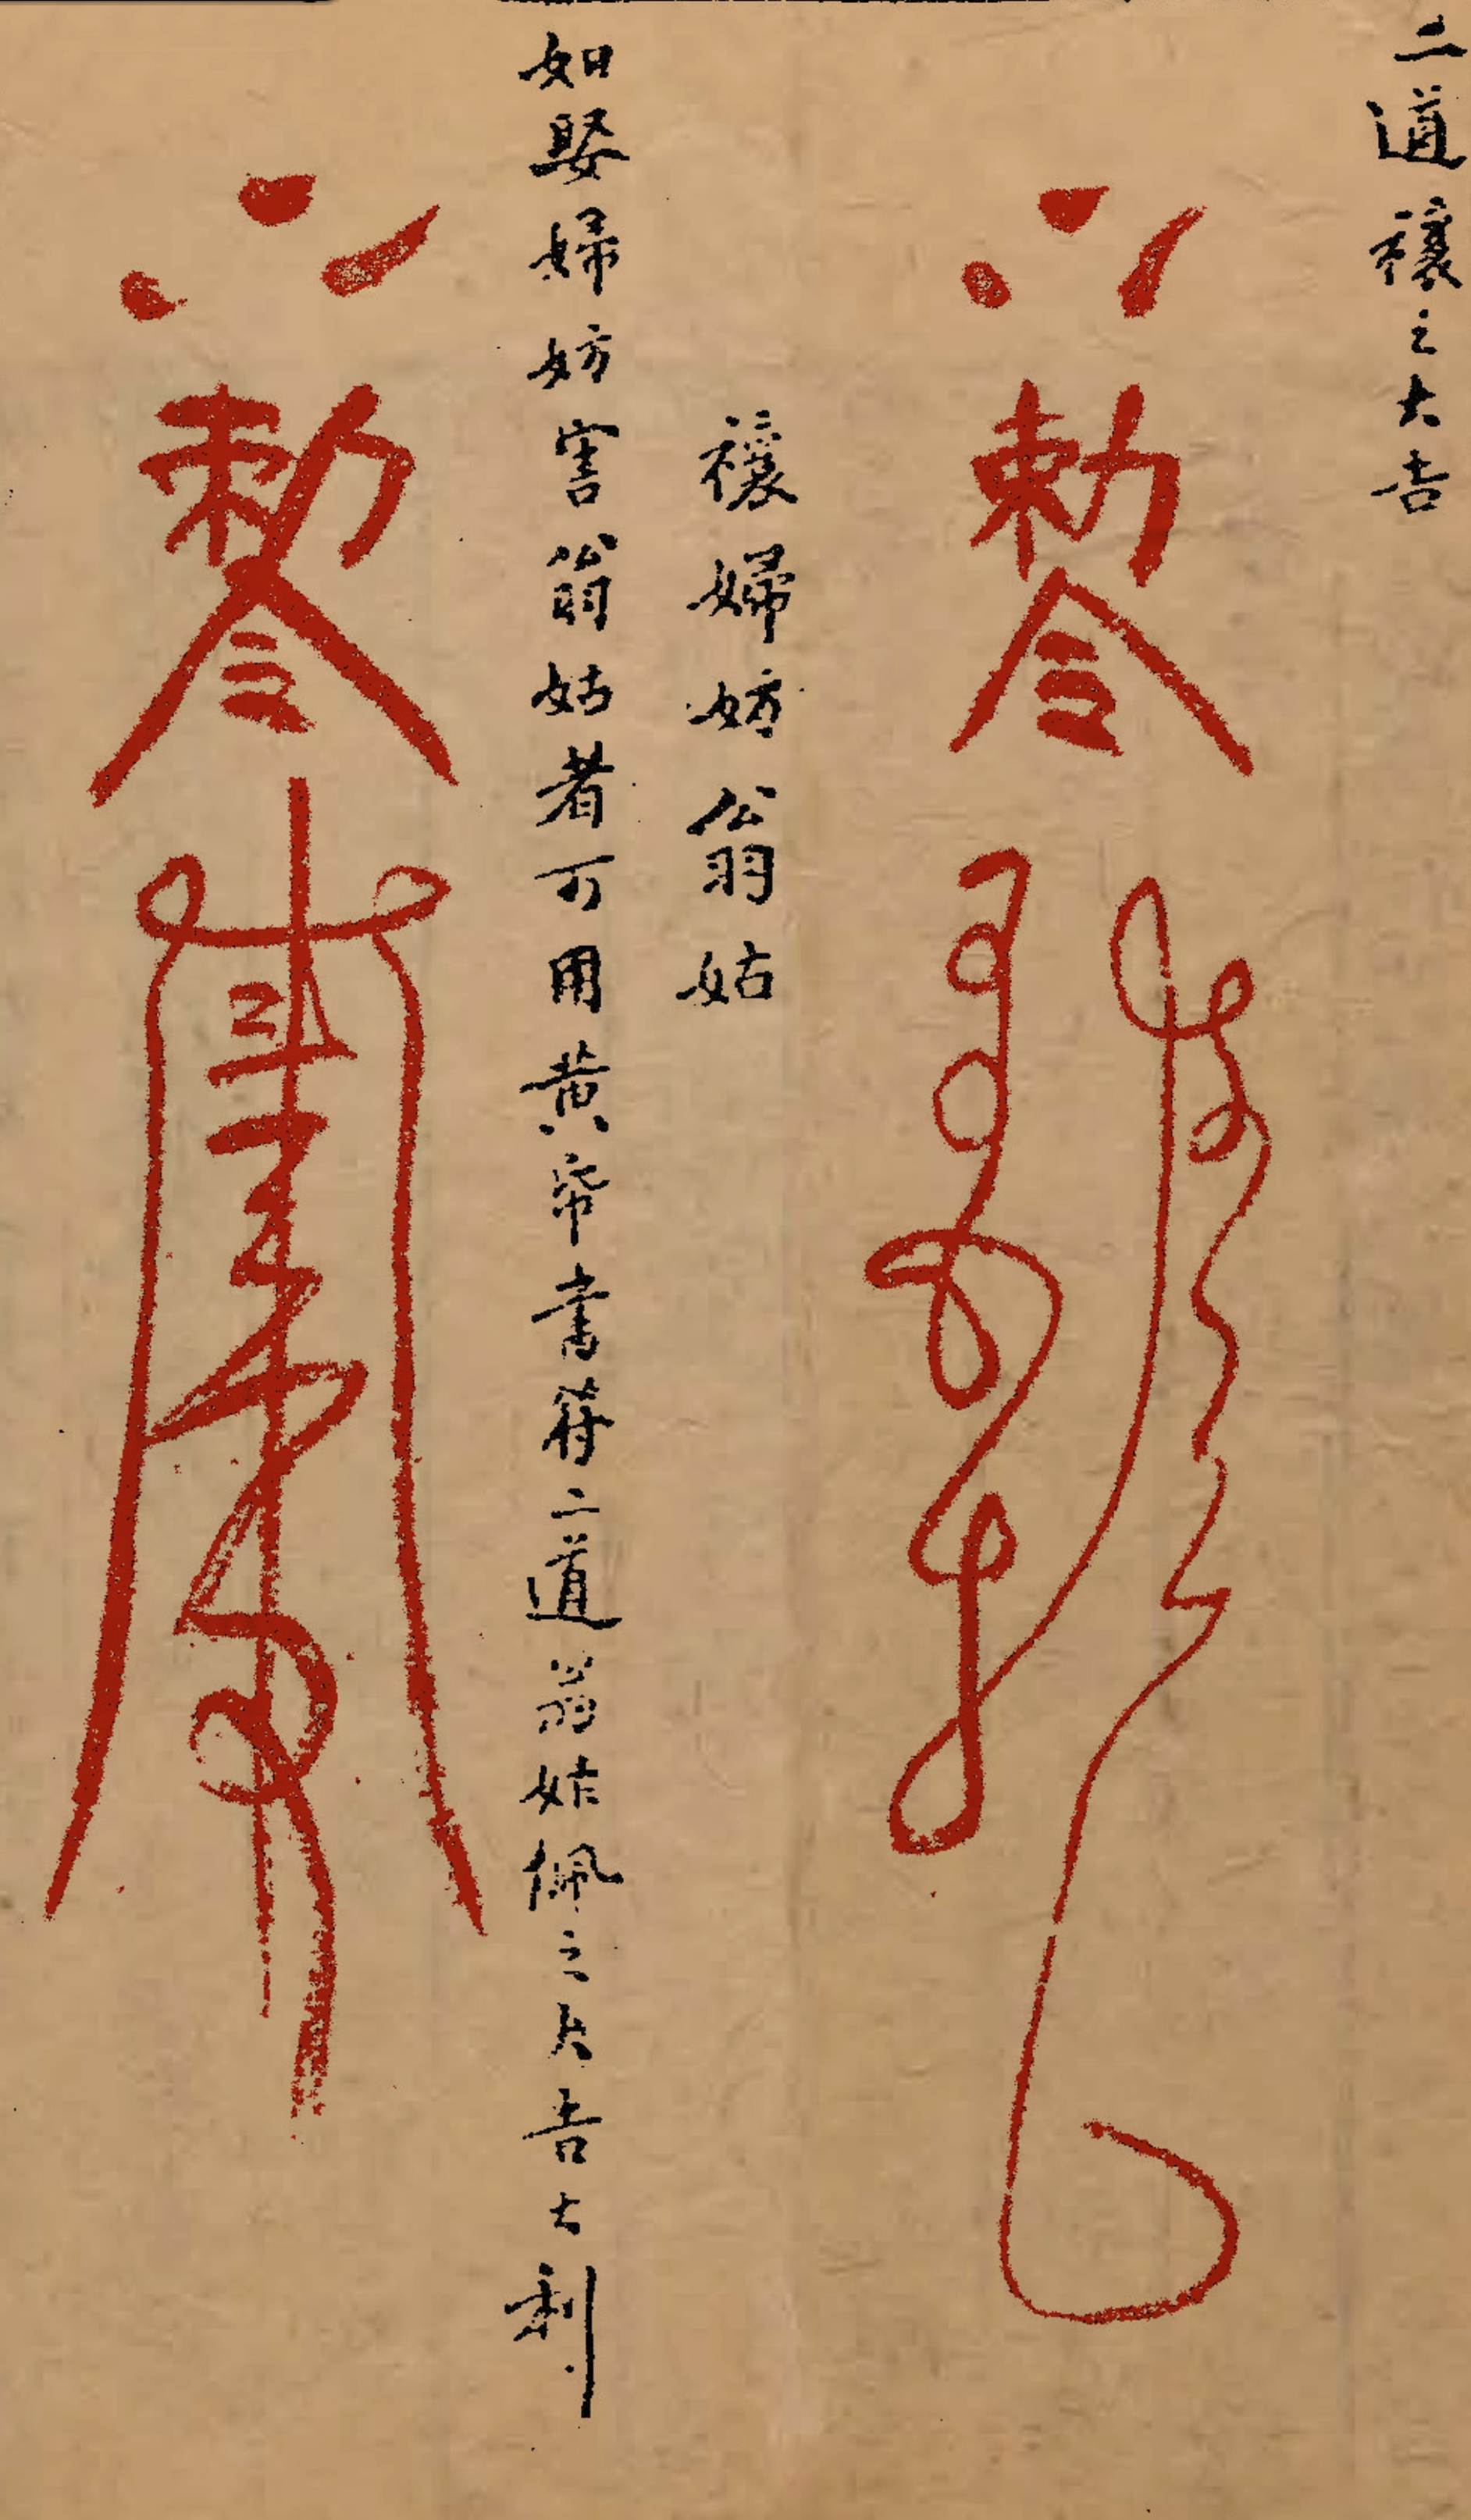 二道禳之大吉
勅令
禳婦妨翁姑
如娶婦妨害翁姑者可用黄帋書符二道翁姑佩之大吉大利
勅令